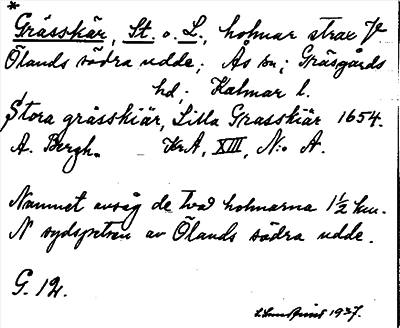 *
Grässkär, St. o. L., holmar strax V
Ölands södra udde; Ås sn; Gräsgårds
hd; Kalmar l.
Stora grässkiär, Lilla Grasskiär 1654.
A. Bergh. KrA, XIII, N:o A.
Namnet avsåg de två holmarna 1½ km.
N sydspetsen av Ölands södra udde.
G. 12.
1937.